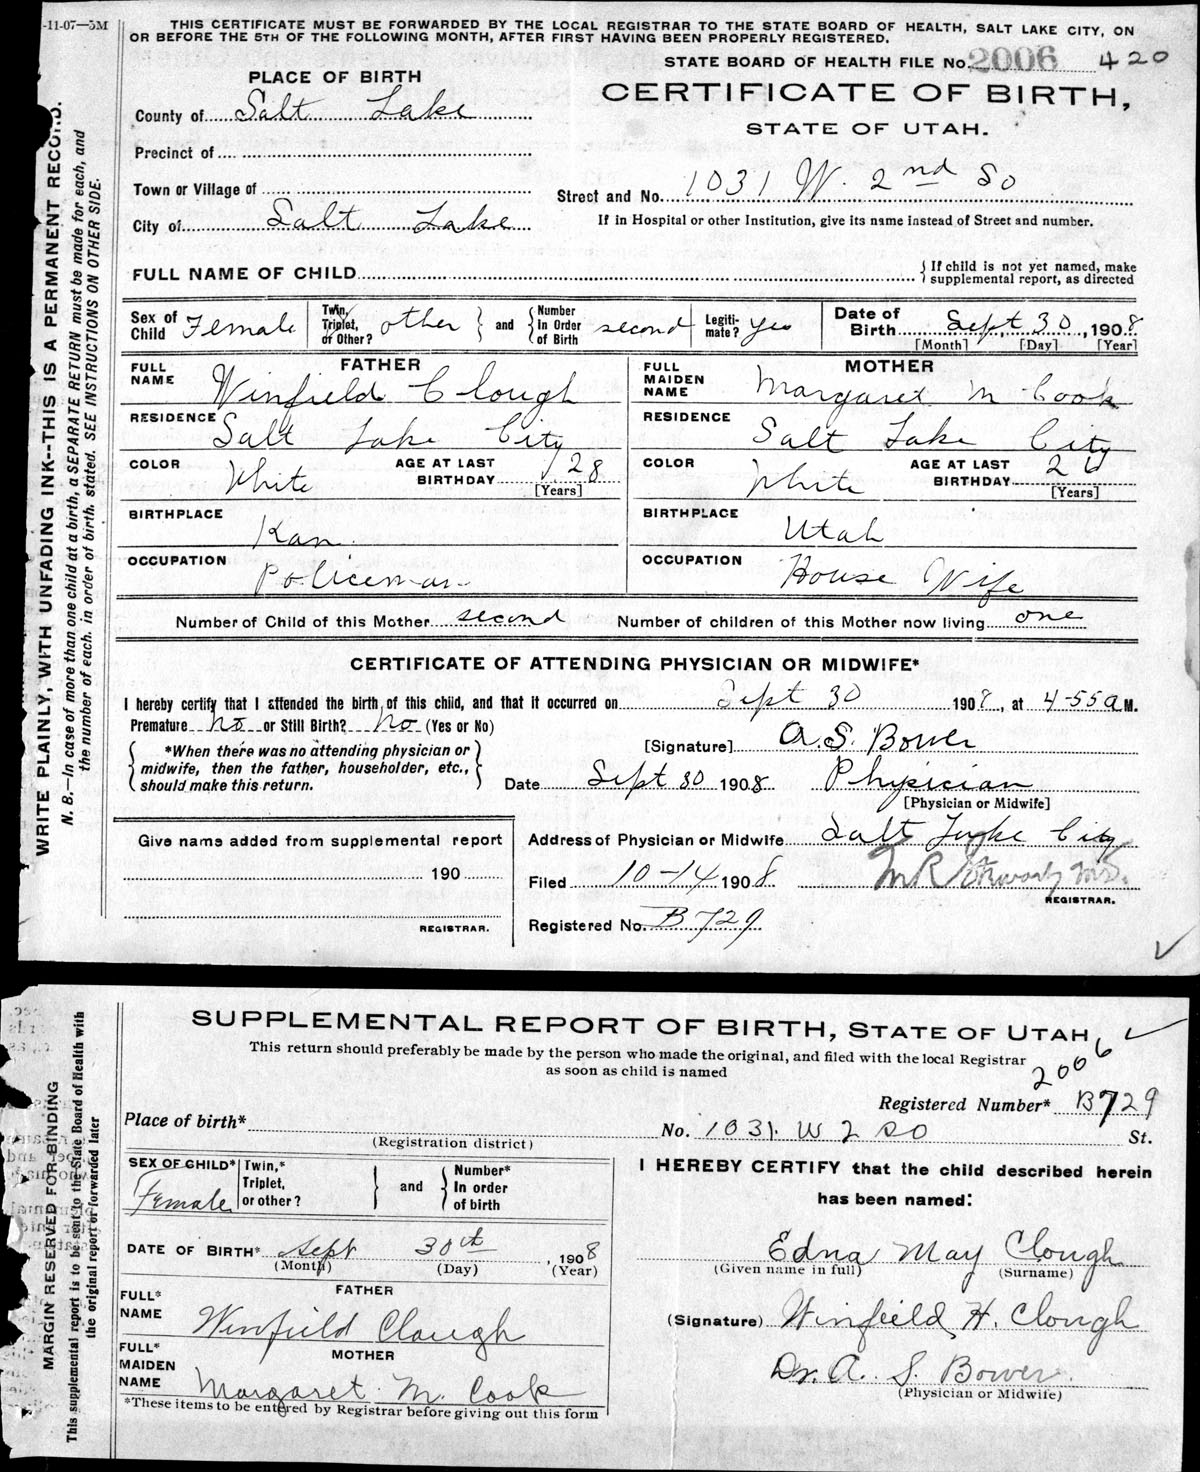 -11-07—5M
THIS CERTIFICATE MUST BE FORWARDED BY THE LOCAL REGISTRAR TO THE STATE BOARD OF HEALTH, SALT LAKE CITY, ON
OR BEFORE THE 5TH OF THE FOLLOWING MONTH, AFTER FIRST HAVING BEEN PROPERLY REGISTERED.
STATE BOARD OF HEALTH FILE No. 2006 420
PLACE OF BIRTH
CERTIFICATE OF BIRTH,
STATE OF UTAH.
County of Salt Lake
Precinct of
Town or Village of
Street and No. 1031 W. 2nd So
City of Salt Lake
If in Hospital or other Institution, give its name instead of Street and number.
FULL NAME OF CHILD { If child is not yet named, make supplemental report, as directed
Sex of Child Female Twin, Triplet, or Other? other } and { Number In Order of Birth second Legitimate? Yes Date of Birth Sept 30, 1908
[Month] [Day] [Year]
FATHER MOTHER
FULL NAME Winfield Clough FULL MAIDEN NAME Margaret M Cook
RESIDENCE Salt Lake City RESIDENCE Salt Lake City
COLOR White AGE AT LAST BIRTHDAY 28 [Years] COLOR White AGE AT LAST BIRTHDAY 26 [Years]
BIRTHPLACE Kan. BIRTHPLACE Utah
OCCUPATION Policeman OCCUPATION House Wife
Number of Child of this Mother second Number of children of this Mother now living one
CERTIFICATE OF ATTENDING PHYSICIAN OR MIDWIFE*
I hereby certify that I attended the birth of this child, and that it occurred on Sept 30 1908, at 4-55 a M.
Premature No or Still Birth? No (Yes or No)
{ *When there was no attending physician or midwife, then the father, householder, etc., should make this return. }
[Signature] A. S. Bower
Date Sept 30 1908 Physician
[Physician or Midwife]
Give name added from supplemental report
Address of Physician or Midwife Salt Lake City
190
Filed 10-14 1908 M.D.
REGISTRAR.
REGISTRAR.
Registered No. B729
WRITE PLAINLY, WITH UNFADING INK--THIS IS A PERMANENT RECORD.
N. B.—In case of more than one child at a birth, a SEPARATE RETURN must be made for each, and
the number of each, in order of birth stated. SEE INSTRUCTIONS ON OTHER SIDE.
SUPPLEMENTAL REPORT OF BIRTH, STATE OF UTAH
This return should preferably be made by the person who made the original, and filed with the local Registrar
as soon as child is named
2006
Registered Number* B729
Place of birth* No. 1031 W 2 SO St.
(Registration district)
SEX OF CHILD* Female Twin,* Triplet, or other? } and { Number* In order of birth
I HEREBY CERTIFY that the child described herein
has been named:
DATE OF BIRTH* Sept 30th, 1908
(Month) (Day) (Year)
Edna May Clough
(Given name in full) (Surname)
FATHER
FULL* NAME Winfield Clough
(Signature) Winfield H. Clough
MOTHER
FULL* MAIDEN NAME Margaret M. Cook
Dr. A. S. Bower.
(Physician or Midwife)
*These items to be entered by Registrar before giving out this form
MARGIN RESERVED FOR BINDING
This supplemental report is to be sent to the State Board of Health with
the original report or forwarded later